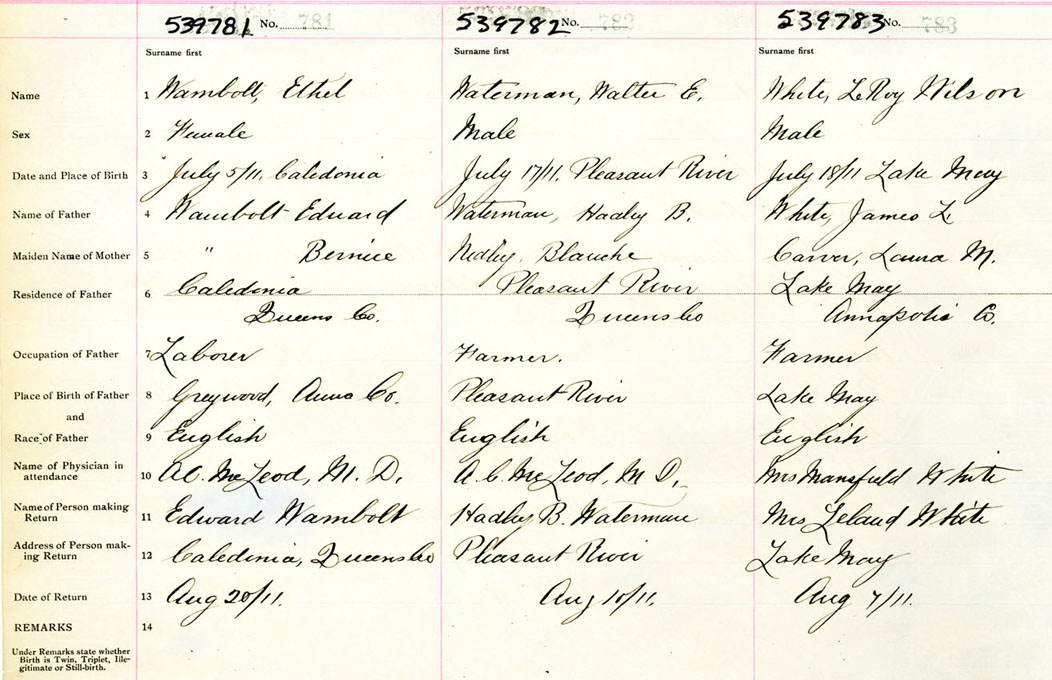 539781 No. 781 539782 No. 782 539783 No. 783
Surname first Surname first Surname first
Name 1 Wambolt, Ethel Waterman, Walter E. White, LeRoy Wilson
Sex 2 Female Male Male
Date and Place of Birth 3 July 5/11. Caledonia July 17/11. Pleasant River July 18/11 Lake May
Name of Father 4 Wambolt Edward Waterman, Hadley B. White, James L.
Maiden Name of Mother 5 " Bernice Blanche Carver, Laura M.
Residence of Father 6 Caledonia Pleasant River Lake May
Queens Co. Queens Co Annapolis Co.
Occupation of Father 7 Laborer Farmer. Farmer
Place of Birth of Father 8 Greywood, Anna Co. Pleasant River Lake May
and
Race of Father 9 English English English
Name of Physician in
attendance 10 A.C. McLeod, M. D. A. C. McLeod, M D. Mrs Mansfield White
Name of Person making
Return 11 Edward Wambolt Hadley B. Waterman Mrs Leland White
Address of Person mak-
ing Return 12 Caledonia, Queens Co Pleasant River Lake May
Date of Return 13 Aug 20/11. Aug 10/11. Aug 7/11.
REMARKS 14
Under Remarks state whether
Birth is Twin, Triplet, Ille-
gitimate or Still-birth.